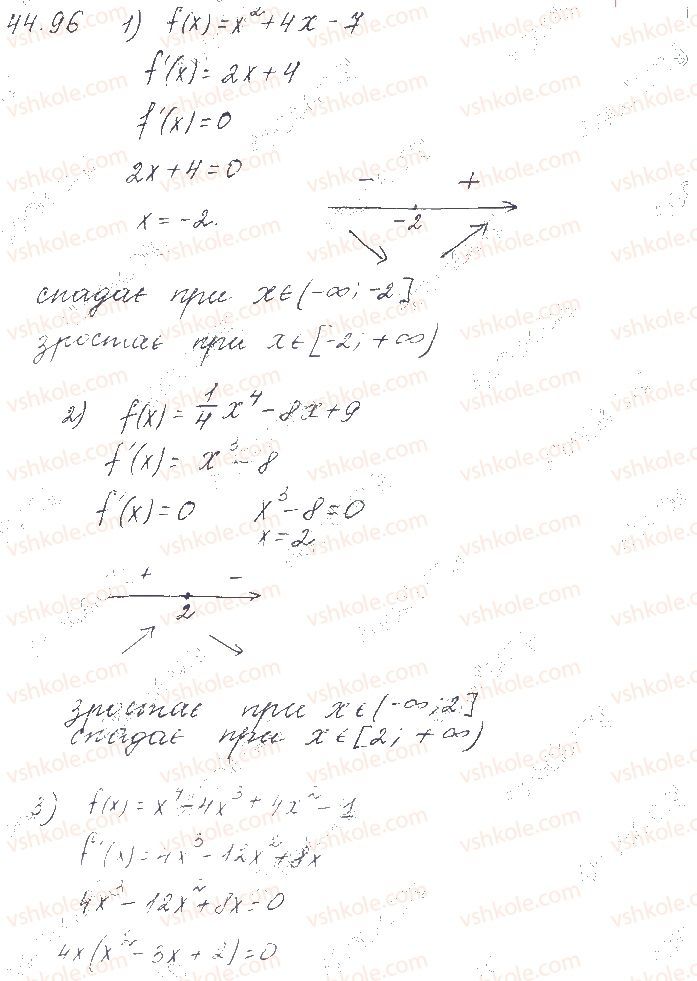 44.96 1) f(x) = x² + 4x - 7
f'(x) = 2x + 4
f'(x) = 0
2x + 4 = 0
x = -2.
- +
-2
спадає при x ∈ (-∞; -2]
зростає при x ∈ [-2; +∞)
2) f(x) = 1/4 x⁴ - 8x + 9
f'(x) = x³ - 8
f'(x) = 0 x³ - 8 = 0
x = 2
+ -
2
зростає при x ∈ (-∞; 2]
спадає при x ∈ [2; +∞)
3) f(x) = x⁴ - 4x³ + 4x² - 1
f'(x) = 4x³ - 12x² + 8x
4x³ - 12x² + 8x = 0
4x(x² - 3x + 2) = 0
vshkole.com